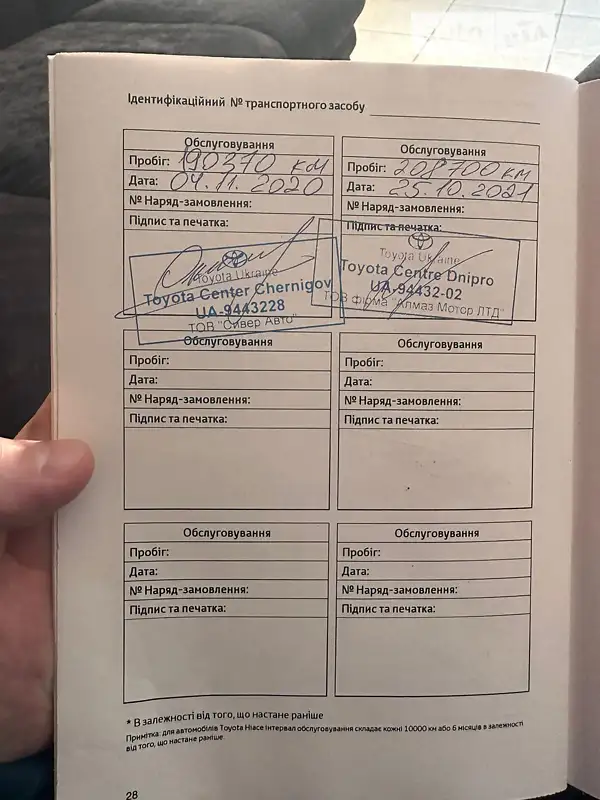 Ідентифікаційний № транспортного засобу
Обслуговування
Пробіг: 190370 км
Дата: 04.11.2020
№ Наряд-замовлення:
Підпис та печатка:
Toyota Ukraine
Toyota Center Chernigov
UA-9443228
ТОВ "Сівер Авто"
Обслуговування
Пробіг: 208700 км
Дата: 25.10.2021
№ Наряд-замовлення:
Підпис та печатка:
Toyota Ukraine
Toyota Centre Dnipro
UA-94432-02
ТОВ фірма "Алмаз Мотор ЛТД"
Обслуговування
Пробіг:
Дата:
№ Наряд-замовлення:
Підпис та печатка:
Обслуговування
Пробіг:
Дата:
№ Наряд-замовлення:
Підпис та печатка:
Обслуговування
Пробіг:
Дата:
№ Наряд-замовлення:
Підпис та печатка:
Обслуговування
Пробіг:
Дата:
№ Наряд-замовлення:
Підпис та печатка:
* В залежності від того, що настане раніше
Примітка: для автомобілів Toyota Hiace інтервал обслуговування складає кожні 10000 км або 6 місяців в залежності
від того, що настане раніше.
28